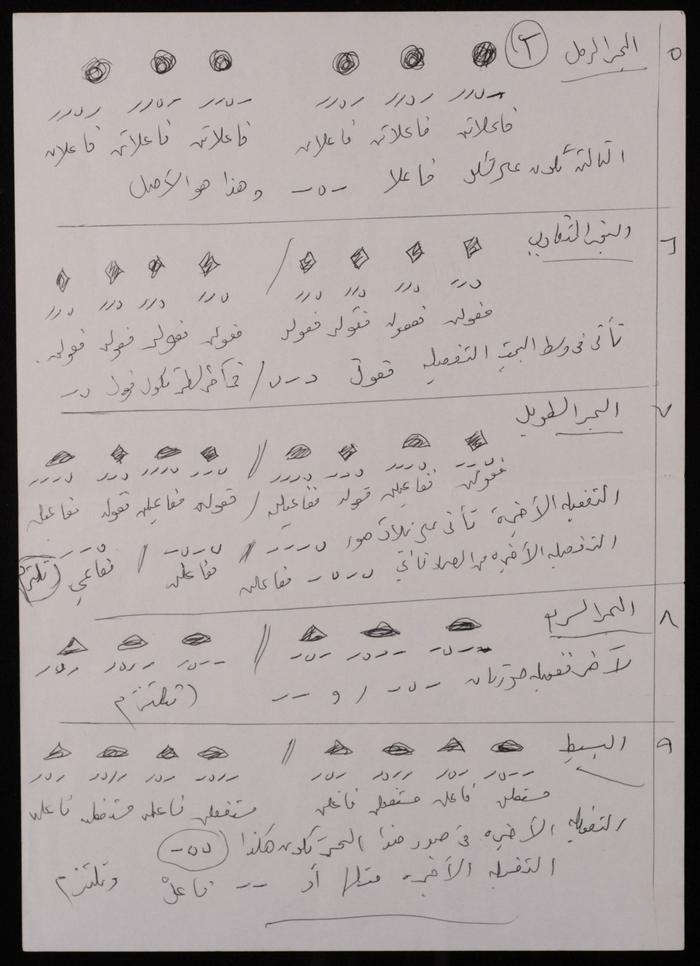 ٥ البحر الرمل ٢
فاعلاتن فاعلاتن فاعلاتن فاعلاتن فاعلاتن فاعلاتن
الثالثة تكون على شكل فاعلا -ں- وهذا هو الأصل
٦ البحر المتقارب
فعولن فعولن فعولن فعولن / فعولن فعولن فعولن فعولن
تأتي في وسط البحر التفعيله فعول ں-ں / تكون فعول
٧ البحر الطويل
فعولن مفاعيلن فعولن مفاعيلن / فعولن مفاعيلن فعولن مفاعيلن
التفعيله الأخيرة تأتي على ثلاث صور ں--- // ں-ں- // ں--
التفعيله الأخيره من الصدر تأتي ں-ں- مفاعلن مفاعلن / مفاعي (تلتزم)
٨ البحر السريع
لآخر تفعيله صورتان -ں- / و -- (تلتزم)
٩ البسيط
مستفعلن فاعلن مستفعلن فاعلن // مستفعلن فاعلن مستفعلن فاعلن
التفعيله الأخيره في صدر هذا البحر تكون هكذا (ںں-)
التفعيله الأخيرة مثلها أو -- فاعلْ وتلتزم